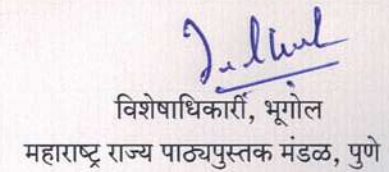 विशेषाधिकारी, भूगोल
महाराष्ट्र राज्य पाठ्यपुस्तक मंडळ, पुणे